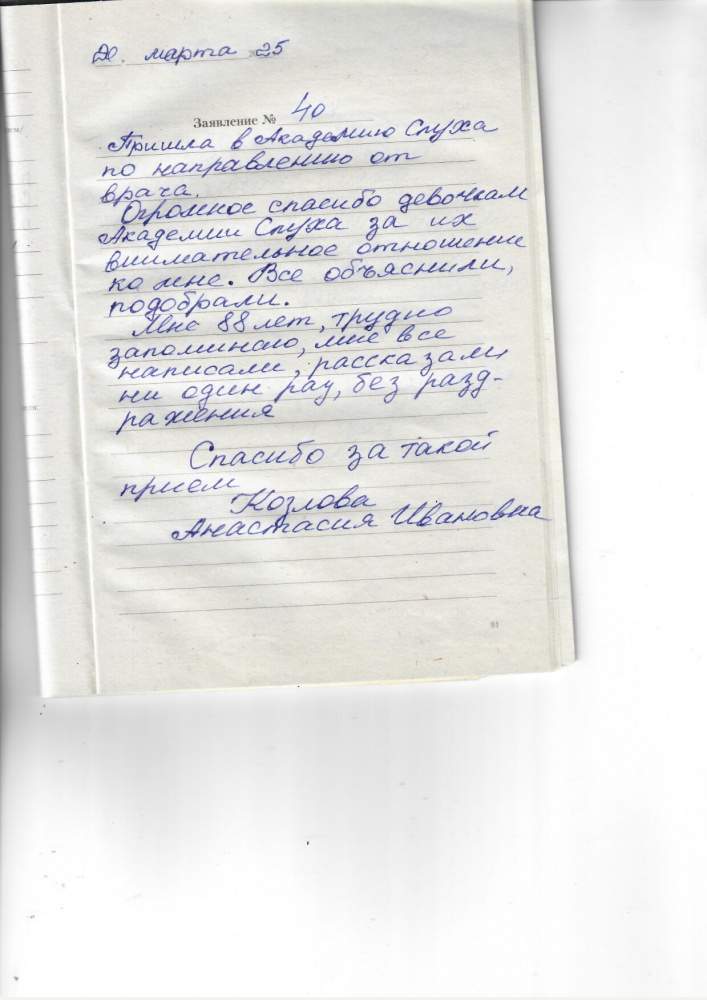 20. марта 25
Заявление № 40
Пришла в Академию Слуха
по направлению от
врача.
Огромное спасибо девочкам
Академии Слуха за их
внимательное отношение
ко мне. Все объяснили,
подобрали.
Мне 88 лет, трудно
запоминаю, мне все
написали, рассказали
ни один раз, без разд-
ражения
Спасибо за такой
прием
Козлова
Анастасия Ивановна
91